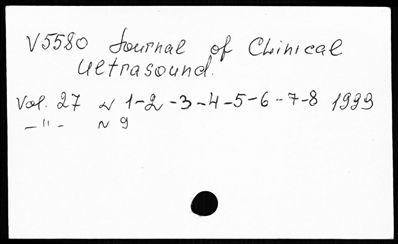 V5580 Journal of Clinical
Ultrasound.
Vol. 27 N 1-2-3-4-5-6-7-8 1999
-"- N 9